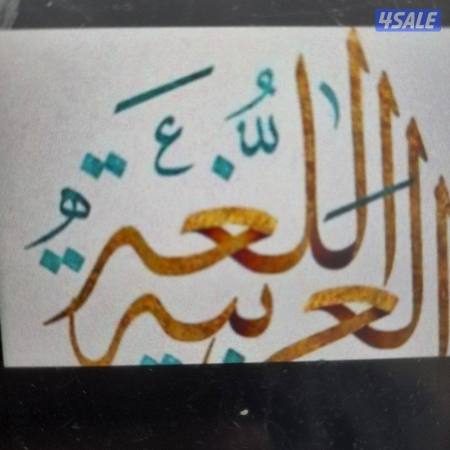 4SALE
اللغة
العربية